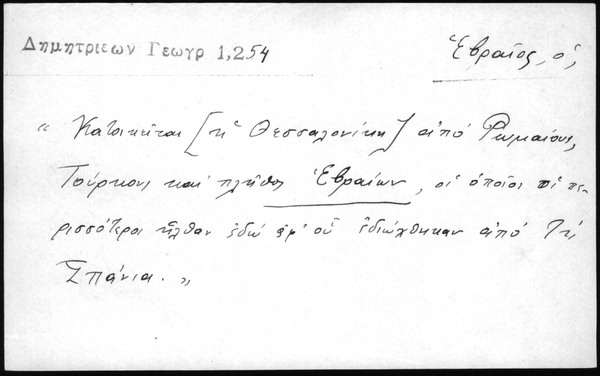 Δημητριεων Γεωγρ 1,254
Ἑβραῖος, ὁ,
"Κατοικεῖται [ἡ Θεσσαλονίκη] ἀπό Ρωμαίους,
Τούρκους καί πλῆθος Ἑβραίων, οἱ ὁποῖοι οἱ πε-
ρισσότεροι ἦλθαν ἐδώ ἀφ' οὗ ἐδιώχθηκαν ἀπό τή
Σπάνια."